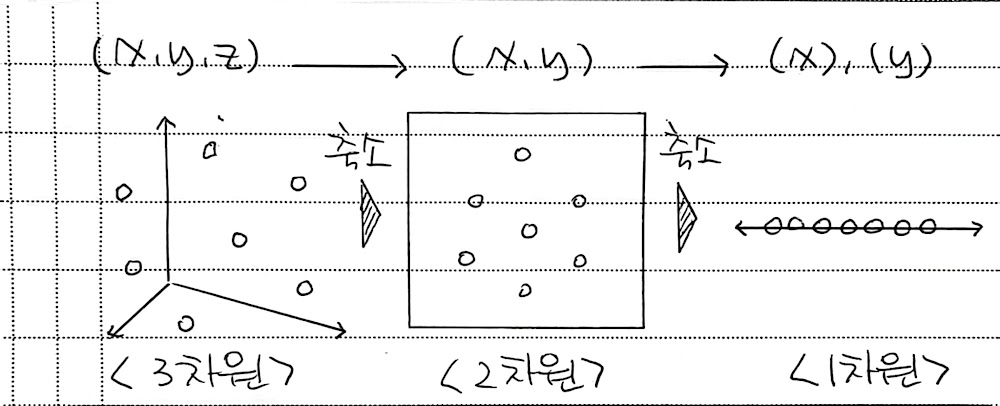 (x, y, z) → (x, y) → (x), (y)
축소 축소
<3차원> <2차원> <1차원>